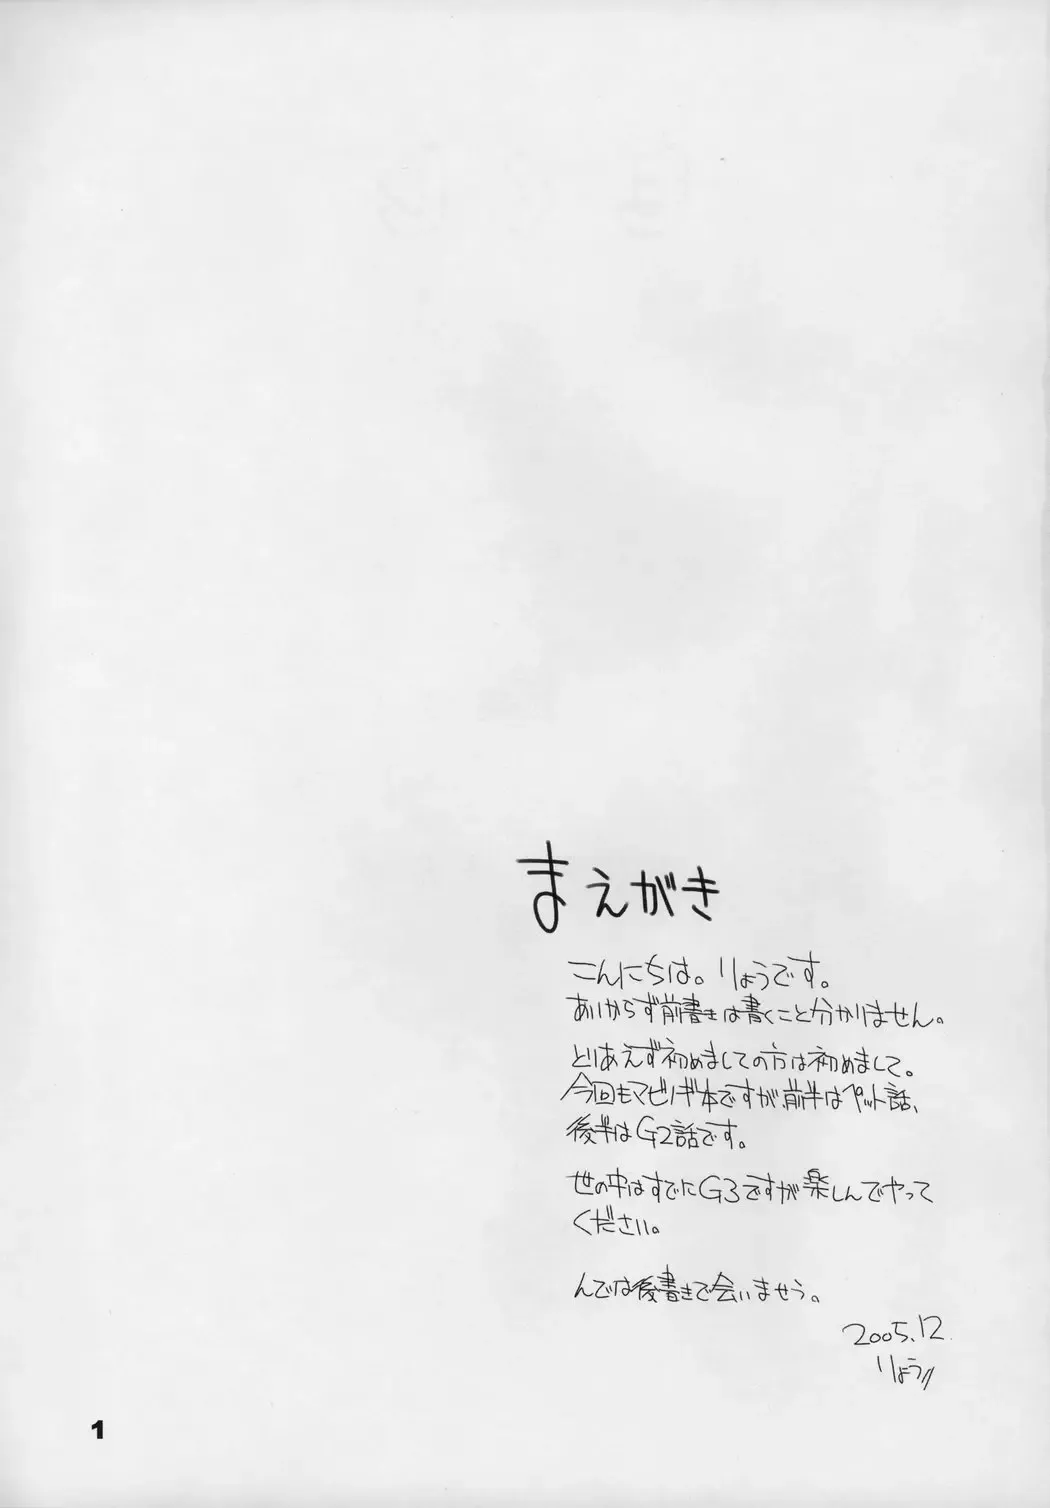 まえがき
こんにちは。りょうです。
あいからず前書きは書くこと分かりません。
とりあえず初めましての方は初めまして。
今回もマビノギ本ですが、前半はペット話、
後半はG2話です。
世の中はすでにG3ですが楽しんでやって
ください。
んでは後書きで会いませう。
2005.12.
りょう
1